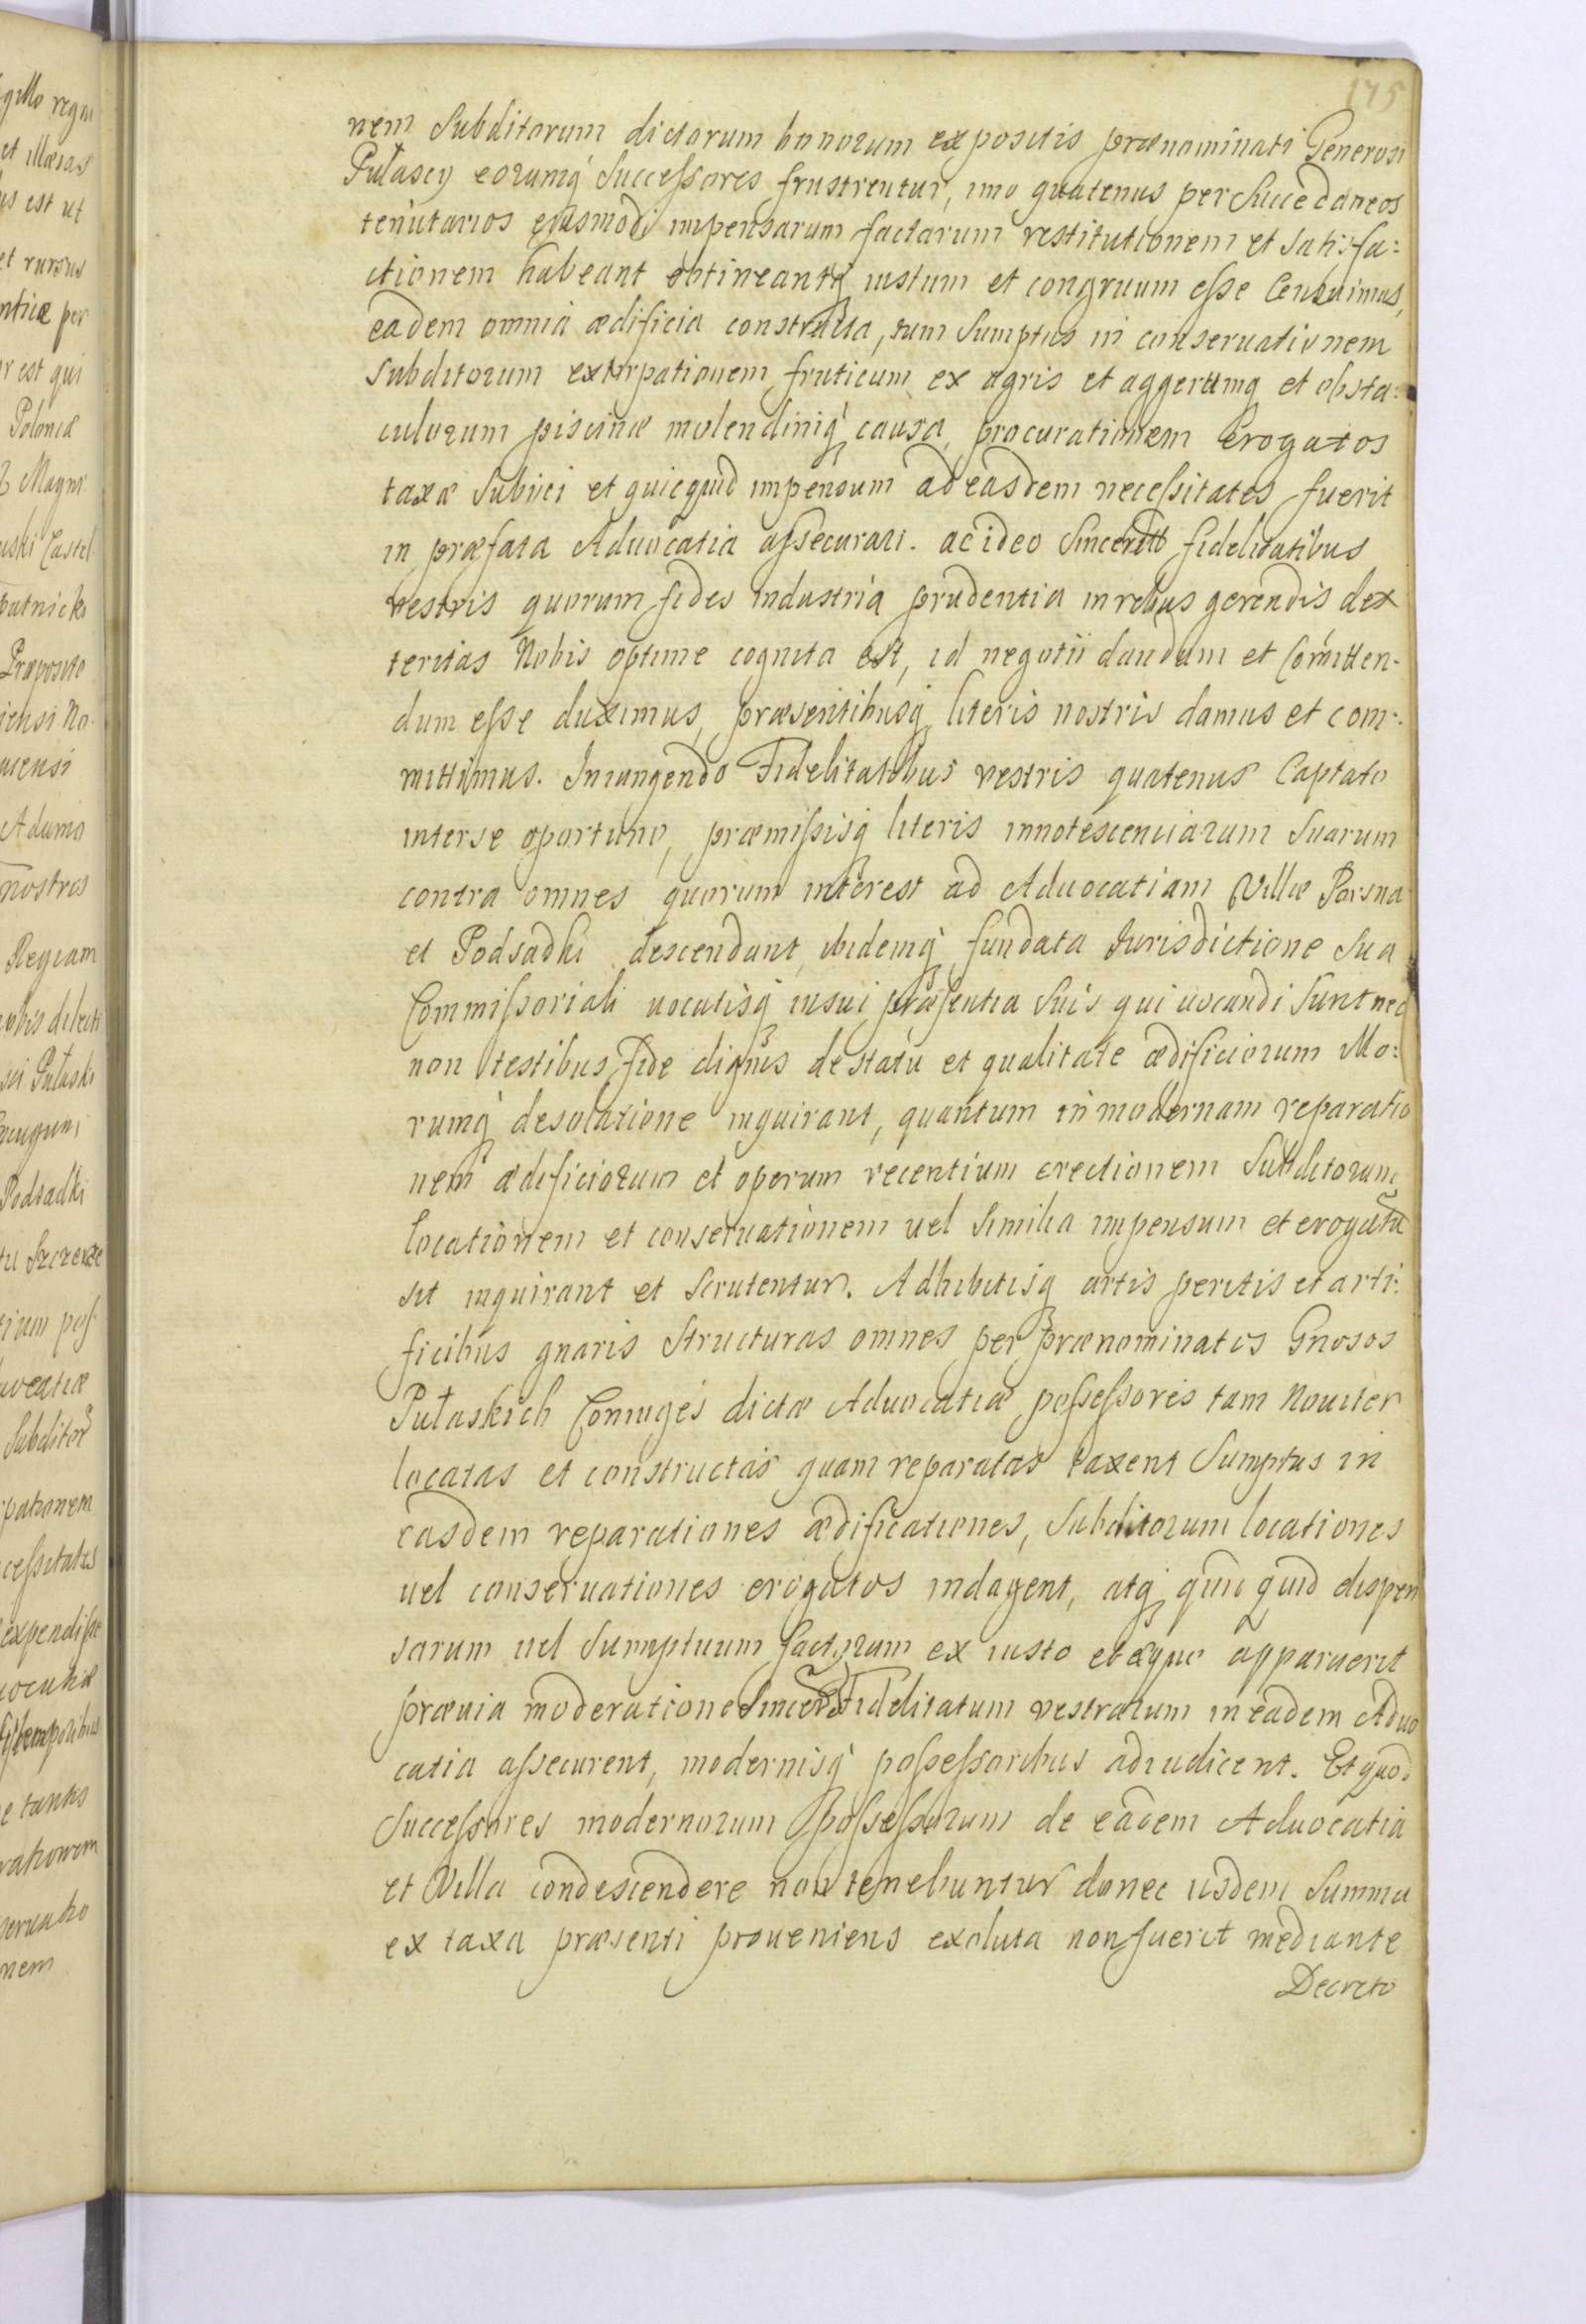 175
nem Subditorum dictorum bonorum expositis prænominati Generosi
Pułascy eorumq́ Successores frustrentur, imo quatenus per Succedaneos
tenutarios eiusmodi impensarum factarum restitutionem et satisfa:
ctionem habeant obtineantq́ iustum et congruum esse Censuimus,
eadem omnia ædificia constructa, tum Sumptus in conseruationem
subditorum extirpationem fruticum ex agris et aggerumq et obsta:
culorum piscinæ molendiniq́ causa, procurationem Erogatos
taxæ subiici et quicquid impensum ad easdem necessitates fuerit
in præfata Aduocatia assecurari. ac ideo Sincerit fidelitatibus
vestris quorum fides industria prudentia in rebus gerendis dex
teritas Nobis optime cognita est, id negotii dandum et Comitten-
dum esse duximus, præsentibusq literis nostris damus et com:
mittimus. Iniungendo Fidelitatibus vestris quatenus Captato
interse oportuno, præmissisq literis innotescenciarum Suarum
contra omnes quorum interest ad Aduocatiam Villæ Porsna
et Podsadki descendant, ibidemq́ fundata Jurisdictione Sua
Commissoriali uocatisq́ in sui præsentia Suis qui uocandi Sunt nec
non testibus fide dignis de statu et qualitate ædificiorum Mo:
rumq́ desolatione inquirant, quantum in modernam reparatio
nem ædificiorum et operum recentium erectionem Subditorum
locationem et conseruationem uel similia impensum et erogatū
sit inquirant et Scrutentur. Adhibitisq artis peritis et arti:
ficibus gnaris Structuras omnes per prænominatos Gnosos
Pułaskich Coniuges dictæ Aduocatiæ possessores tam Nouiter
locatas et constructas quam reparatas taxent Sumptus in
easdem reparationes ædificationes, Subditorum locationes
uel conseruationes erogatos indagent, atq́ quic quid dispen
sarum uel Sumptuum factorum ex iusto et æquo apparuerit
præuia moderatione Sincer Fidelitatum vestrarum in eadem Aduo
catia assecurent, modernisq́ possessoribus adiudicent. Et quod
Successores modernorum Possessorum de eadem Aduocatia
et Villa condescendere non tenebuntur donec iisdem Summa
ex taxa præsenti proueniens exoluta non fuerit mediante
Decreto